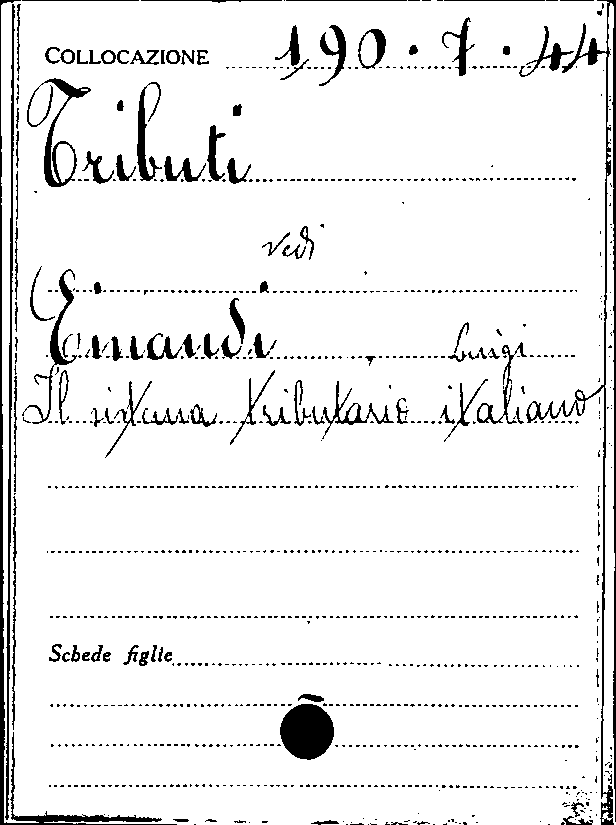 COLLOCAZIONE 190·7·44
Tributi
vedi
Einaudi, Luigi
Il sistema tributario italiano
Schede figlie